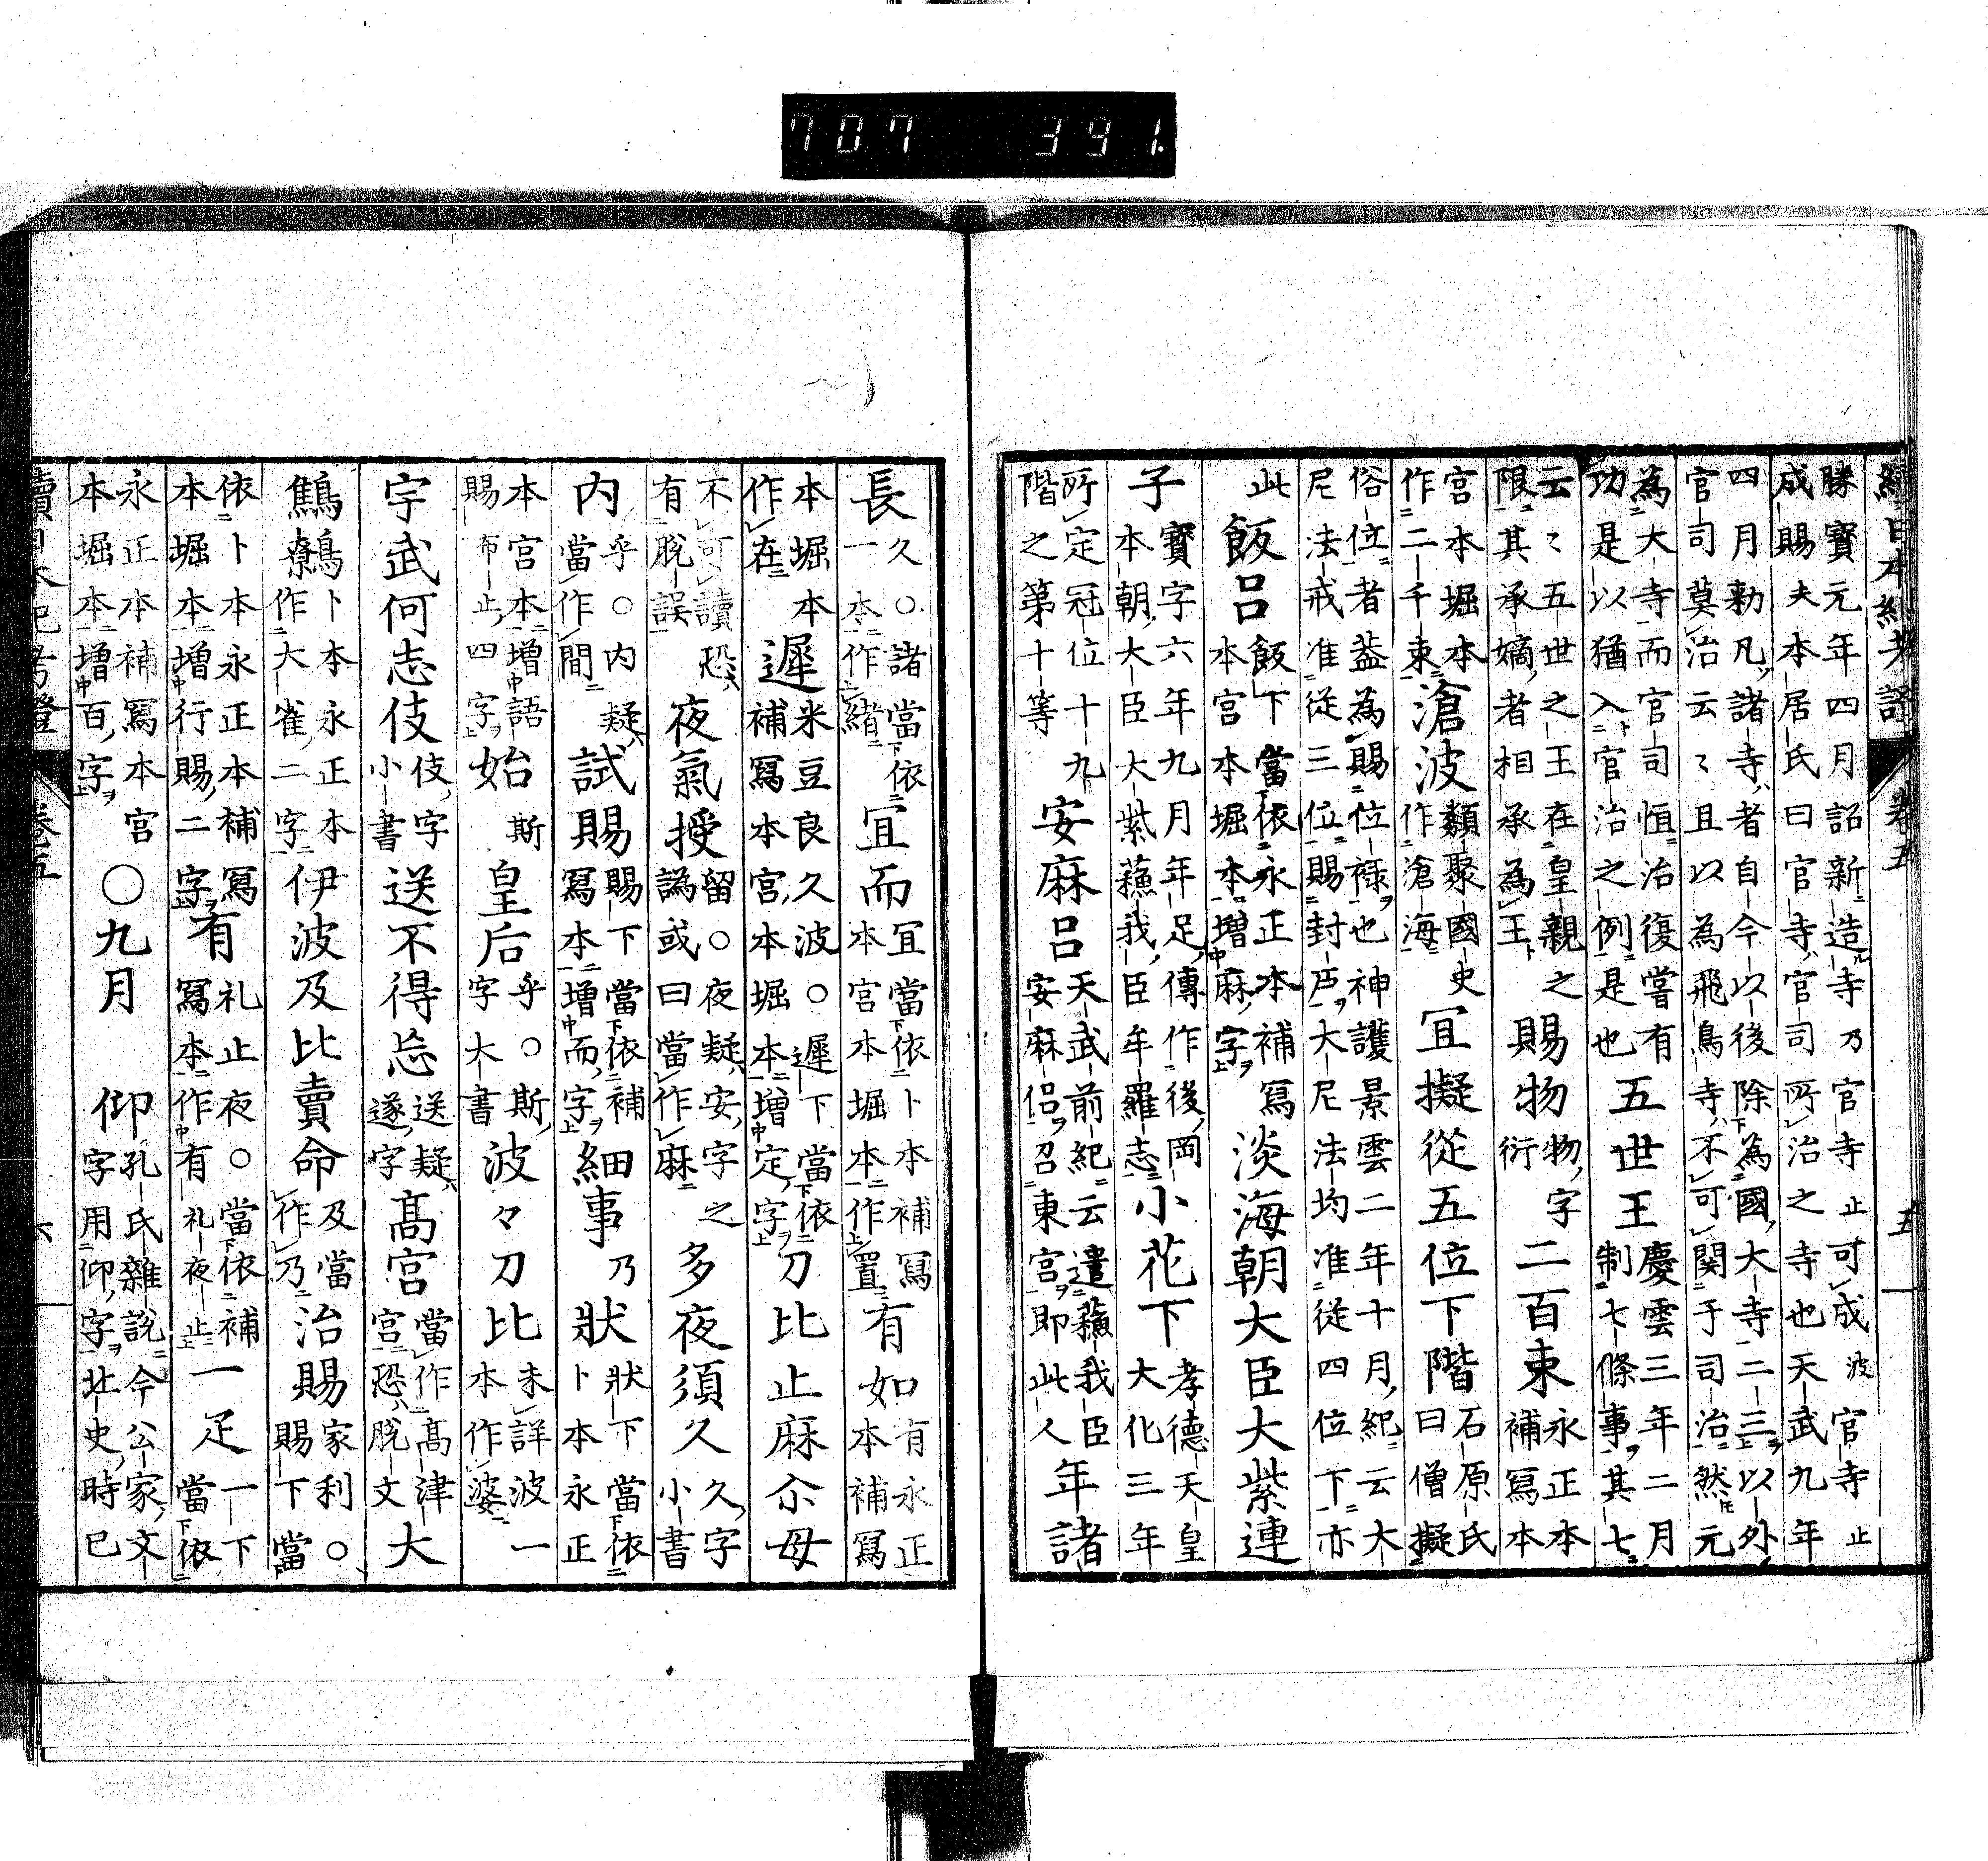 707 391.
續日本紀考證 卷五 五
勝寶元年四月詔新造寺乃官寺止可成波官寺止
成賜夫本居氏曰官寺官司所治之寺也天武九年
四月勅凡諸寺者自今以後除為國大寺二三以外
官司莫治云〻且以為飛鳥寺不可関于司治然元
為大寺而官司恒治復嘗有
功是以猶入官治之例是也
五世王
慶雲三年二月
制七條事其七
云〻五世之王在皇親之
限其承嫡者相承為王
賜物
物字
衍
二百束
永正本
補寫本
宮本堀本
作二千束
滄波
類聚國史
作滄海
宜擬從五位下階
石原氏
曰僧擬
俗位者蓋為賜位祿也神護景雲二年十月紀云大
尼法戒准從三位賜封戸大尼法均准從四位下亦
此
飯呂
飯下當依永正本補寫
本宮本堀本增麻字
淡海朝大臣大紫連
子
寶字六年九月年足傳作後岡
本朝大臣大紫蘓我臣牟羅志
小花下
孝德天皇
大化三年
所定冠位十九
階之第十等
安麻呂
天武前紀云遣蘓我臣
安麻侶召東宮即此人
年諸
長
久〇諸當依
一本作緒
宜而
宜當依卜本補寫
本宮本堀本作置
有如
有永正
本補寫
本堀本
作在
遲
米豆良久波〇遲下當依
補寫本宮本堀本增定字
刀比止麻尓毋
不可讀恐
有脫誤
夜氣授
留〇夜疑安字之
譌或曰當作麻
多夜須久
久字
小書
内
乎〇内疑
當作間
試賜
賜下當依補
寫本增而字
細事
乃
狀
狀下當依
卜本永正
本宮本增語
賜布止四字
始
斯
皇后
乎〇斯
字大書
波々刀比
未詳波一
本作婆
宇武何志伎
伎字
小書
送不得忘
送疑
遂字
高宮
當作高津
宮恐脫文
大
鷦鷯
卜本永正本
作大雀二字
伊波及比賣命
及當
作乃
治賜
家利〇
賜下當
依卜本永正本補寫
本堀本增行賜二字
有
礼止夜〇當依補
寫本作有礼夜止
一疋
一下
當依
永正本補寫本宮
本堀本增百字
〇九月
仰
孔氏雜說今公家文
字用仰字北史時已
續日本紀考證 卷五 六